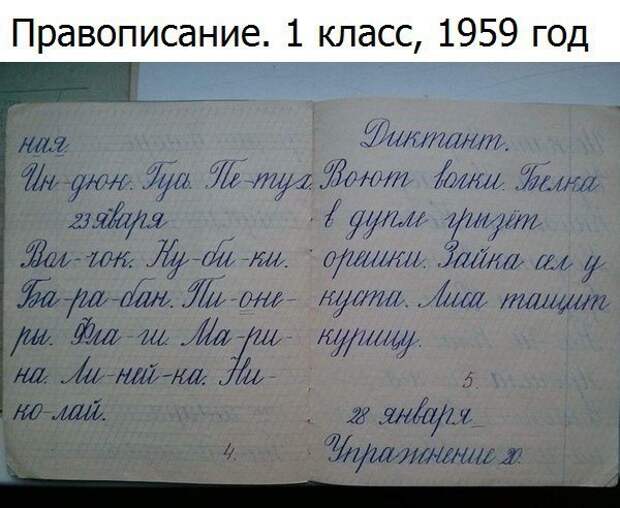 Правописание. 1 класс, 1959 год
ная.
Ин-дюк. Гусь. Пе-тух
23 января
Вол-чок. Ку-би-ки.
Ба-ра-бан. Пи-оне-
ры. Фла-ги. Ма-ри-
на. Ли-ней-ка. Ни-
ко-лай.
4.
Диктант.
Воют волки. Белка
в дупле грызёт
орешки. Зайка сел у
куста. Лиса тащит
курицу.
5.
28 января
Упражнение 20.